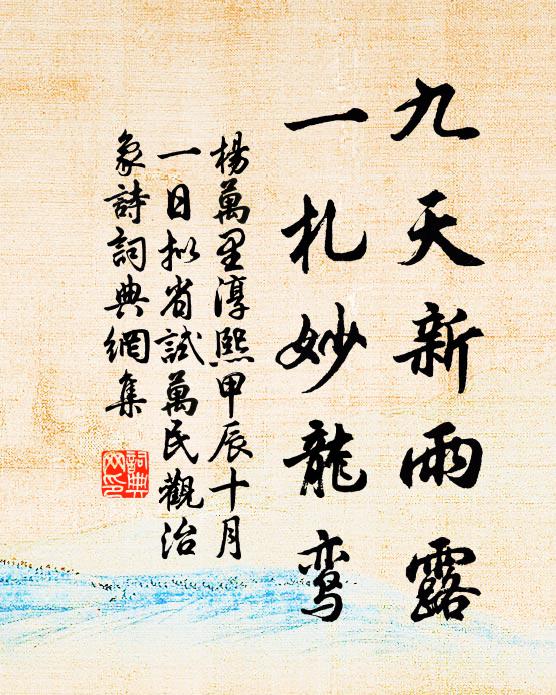 九天新雨露
一札妙龍鸾
楊萬里淳熙甲辰十月
一日拟省試萬民觀治
象詩詞典網集
詞典
网印